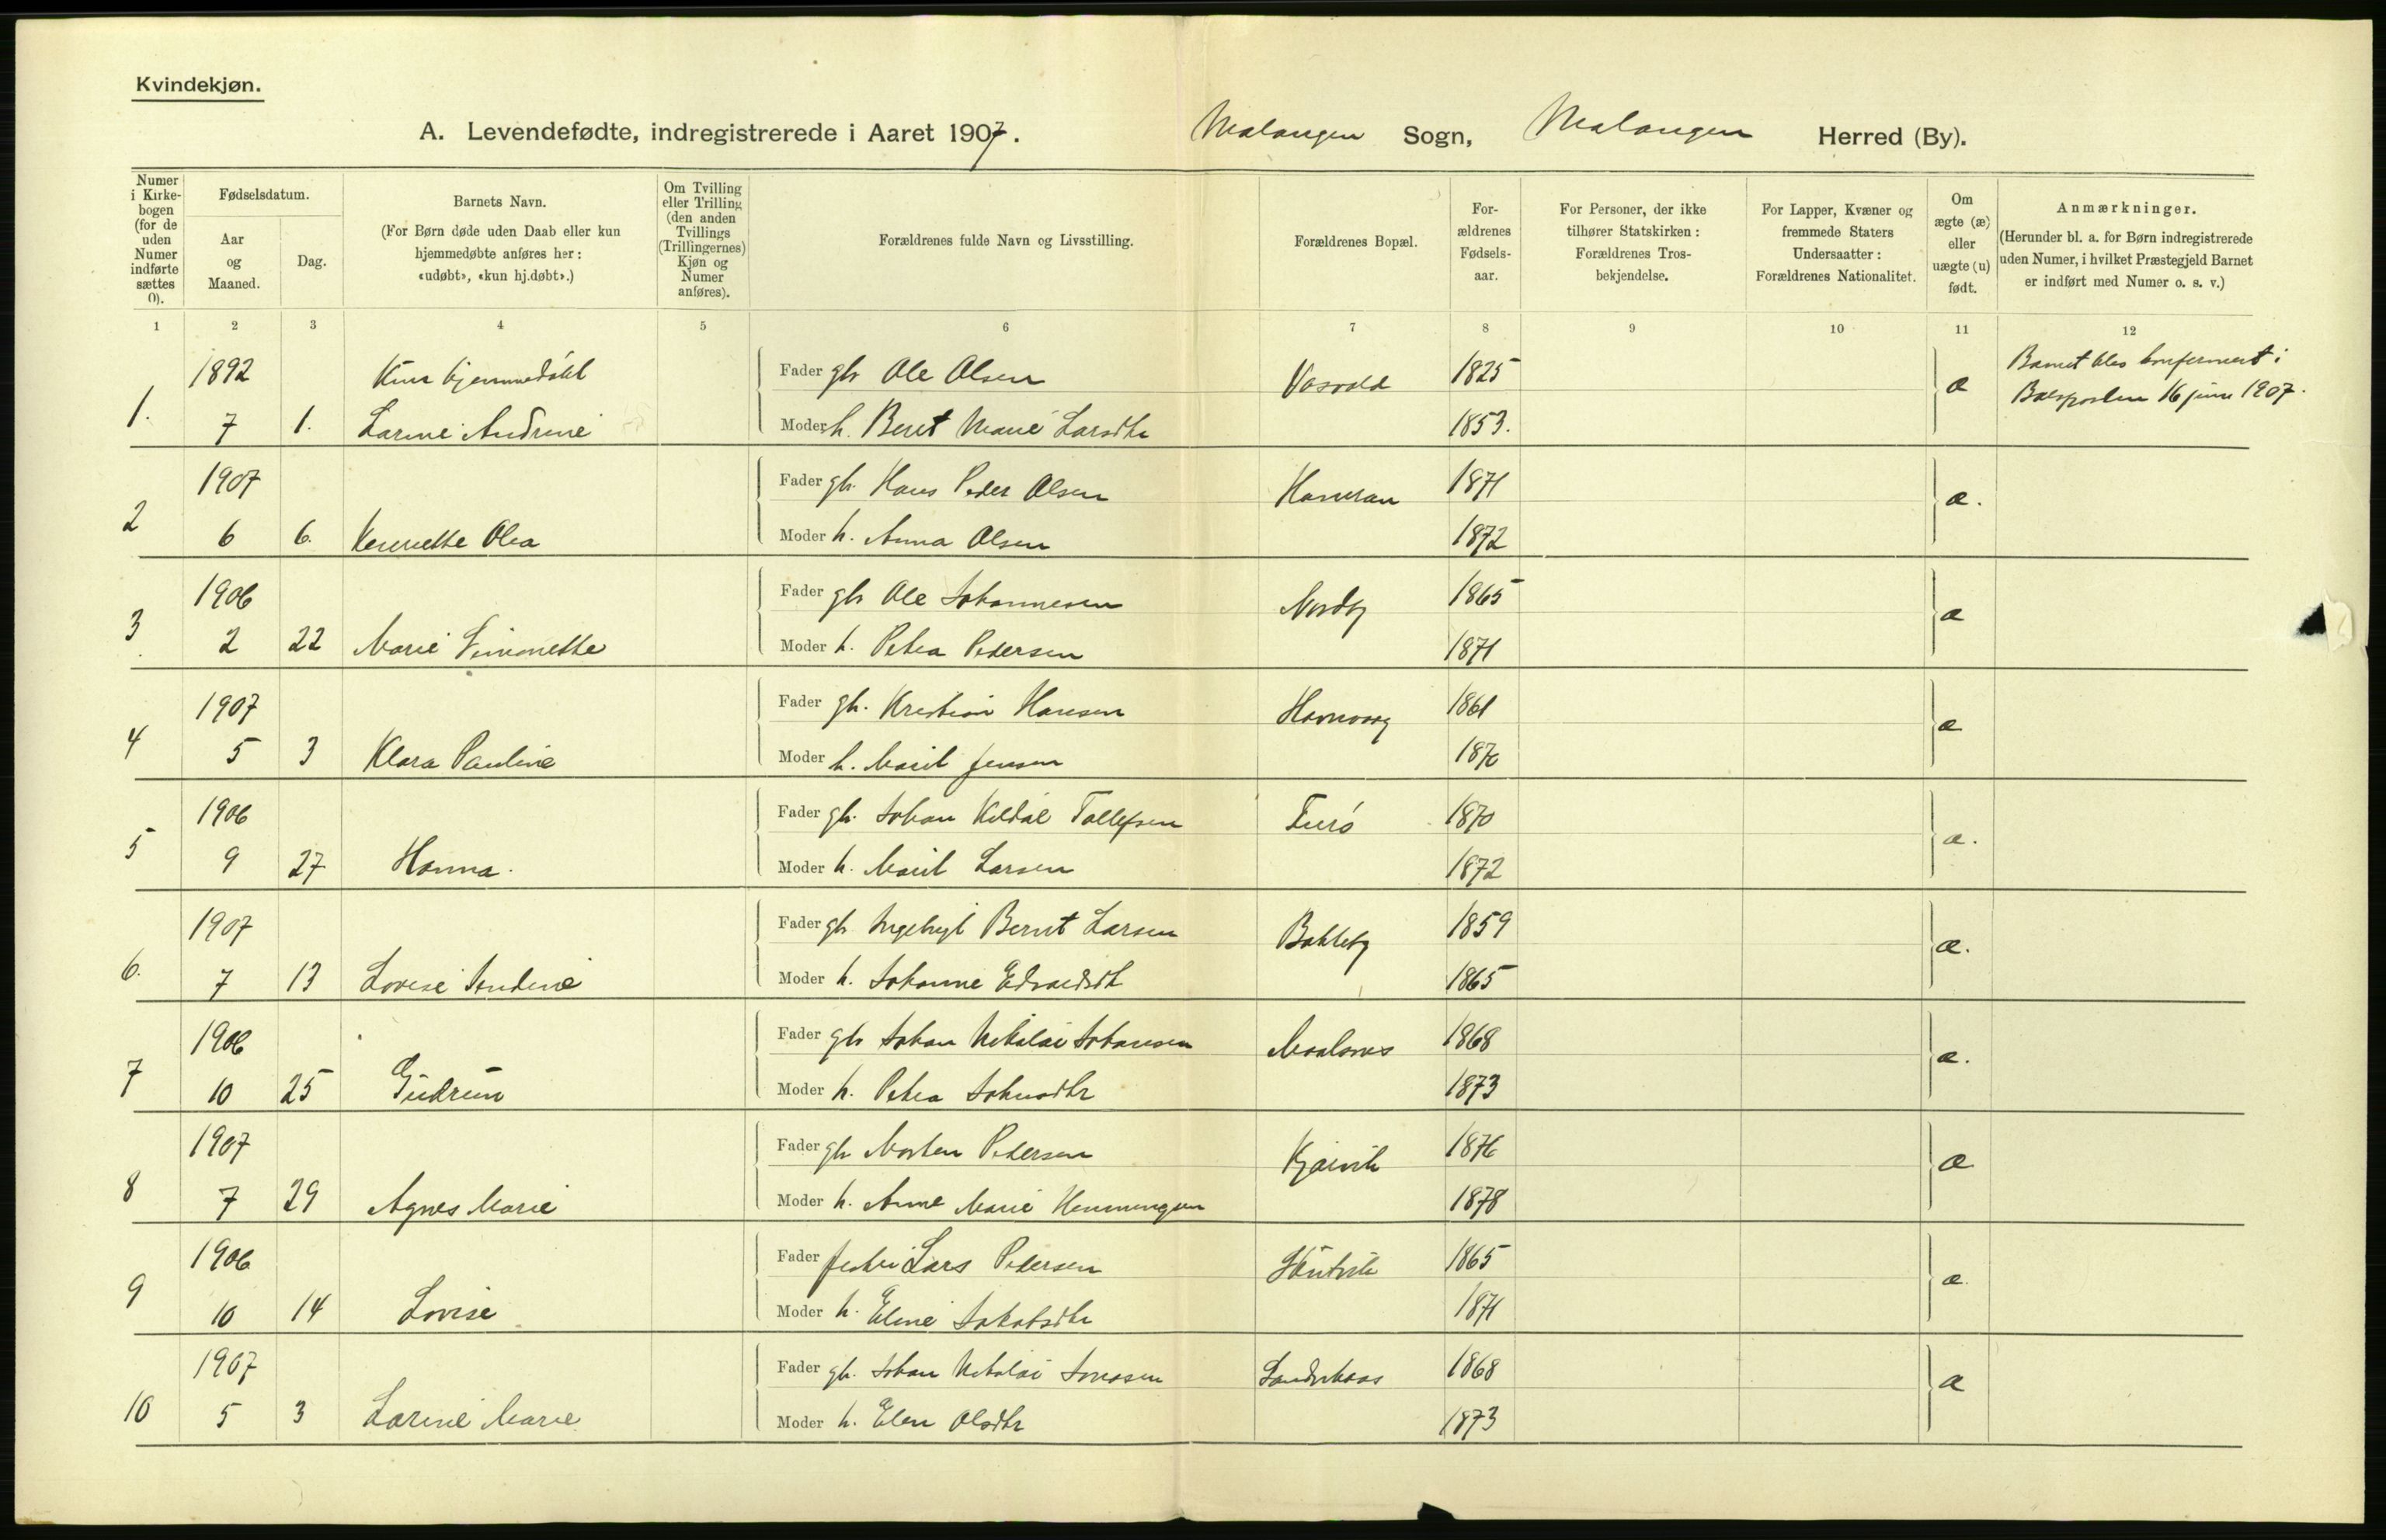 Kvindekjøn.
A. Levendefødte, indregistrerede i Aaret 1907. Malangen Sogn, Malangen Herred (By).
Numer i Kirkebogen (for de uden Numer indførte sættes 0).
Fødselsdatum.
Aar og Maaned.
Dag.
Barnets Navn.
(For Børn døde uden Daab eller kun hjemmedøbte anføres her: «udøbt», «kun hj.døbt».)
Om Tvilling eller Trilling (den anden Tvillings (Trillingernes) Kjøn og Numer anføres).
Forældrenes fulde Navn og Livsstilling.
Forældrenes Bopæl.
Forældrenes Fødselsaar.
For Personer, der ikke tilhører Statskirken: Forældrenes Trosbekjendelse.
For Lapper, Kvæner og fremmede Staters Undersaatter: Forældrenes Nationalitet.
Om ægte (æ) eller uægte (u) født.
Anmærkninger.
(Herunder bl. a. for Børn indregistrerede uden Numer, i hvilket Præstegjeld Barnet er indført med Numer o. s. v.)
1 2 3 4 5 6 7 8 9 10 11 12
1892 Kun hjemmedøbt Fader gbr Ole Olsen 1825 Barnet blev konfirmert i
1. 7 1. Larine Andrine Moder h. Berit Marie Larsdtr 1853. æ 16 juni 1907.
1907 Fader gbr. Hans Peder Olsen 1871
2 6 6. Olea Moder h. Anna Olsen 1872 æ.
1906 Fader gbr Ole Johannesen Nordby 1865
3 2 22 Marie Simonette Moder h. Petra Pedersen 1871 æ
1907 Fader gbr. Kristian Hansen 1861
4 5 3 Klara Pauline Moder h. Marit Jensen æ
1906 Fader gbr. Johan Kildal Tollefsen 1870
5 9 27 Hanna. Moder h. Marit Larsen 1872 æ.
1907 Fader gbr Ingebrigt Bernt Larsen Bakkeby 1859
6. 7 13 Lovise Moder h. Johanne 1865 æ.
1906 Fader gbr Johan Nikolai Johansen Maalsnes 1868
7 10 25 Gudrun Moder h. Petra Johnsdtr 1873 æ.
1907 Fader gbr Morten Pedersen 1876
8 7 29 Agnes Marie Moder h. Anne Marie Henningsen 1878 æ
1906 Fader Lars Pedersen 1865
9 10 14 Lovise Moder h. Eline Jakobsdtr 1871 æ.
1907 Fader gb. Johan Nikolai Jonasen 1868
10 5 3 Larine Marie Moder h. Elen Olsdtr 1873 æ